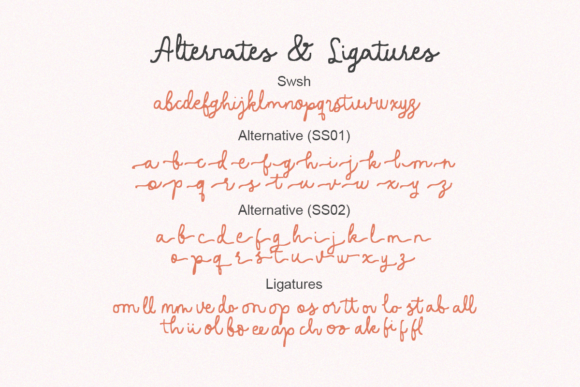 Alternates & Ligatures
Swsh
abcdefghijklmnopqrstuvwxyz
Alternative (SS01)
a b c d e f g h i j k l m n
o p q r s t u v w x y z
Alternative (SS02)
a b c d e f g h i j k l m n
o p q r s t u v w x y z
Ligatures
om ll mm ve do on op os or tt ov lo st ab all
th ii ol bo ee ap ch oo ak fi f fl